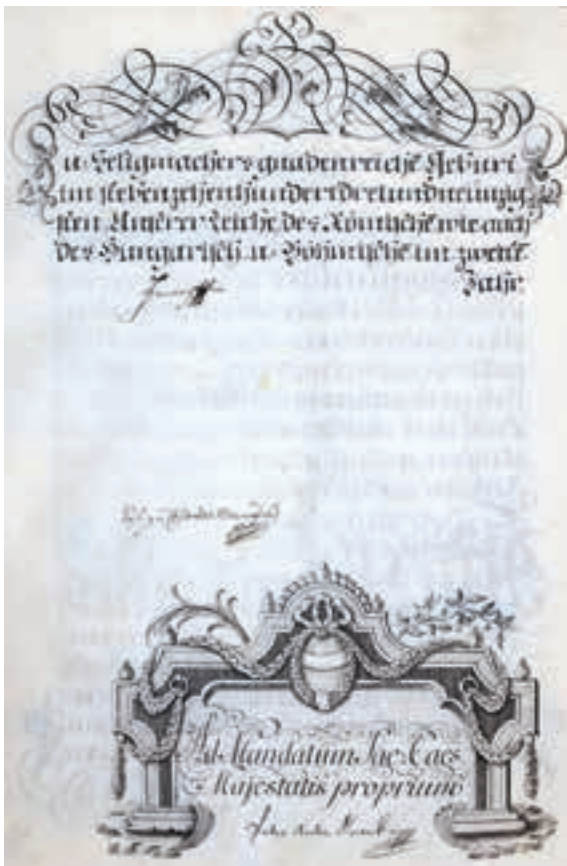 u. Seligmachers gnadenreiche Geburt
im siebenzehenhundertdreiundneunzig
sten Unserer Reiche des Römisch. wie auch
des Hungarisch. u. Böhmisch. im zweit.
Jahr.
Franz
Ad Mandatum Sac. Caes.
Majestatis proprium